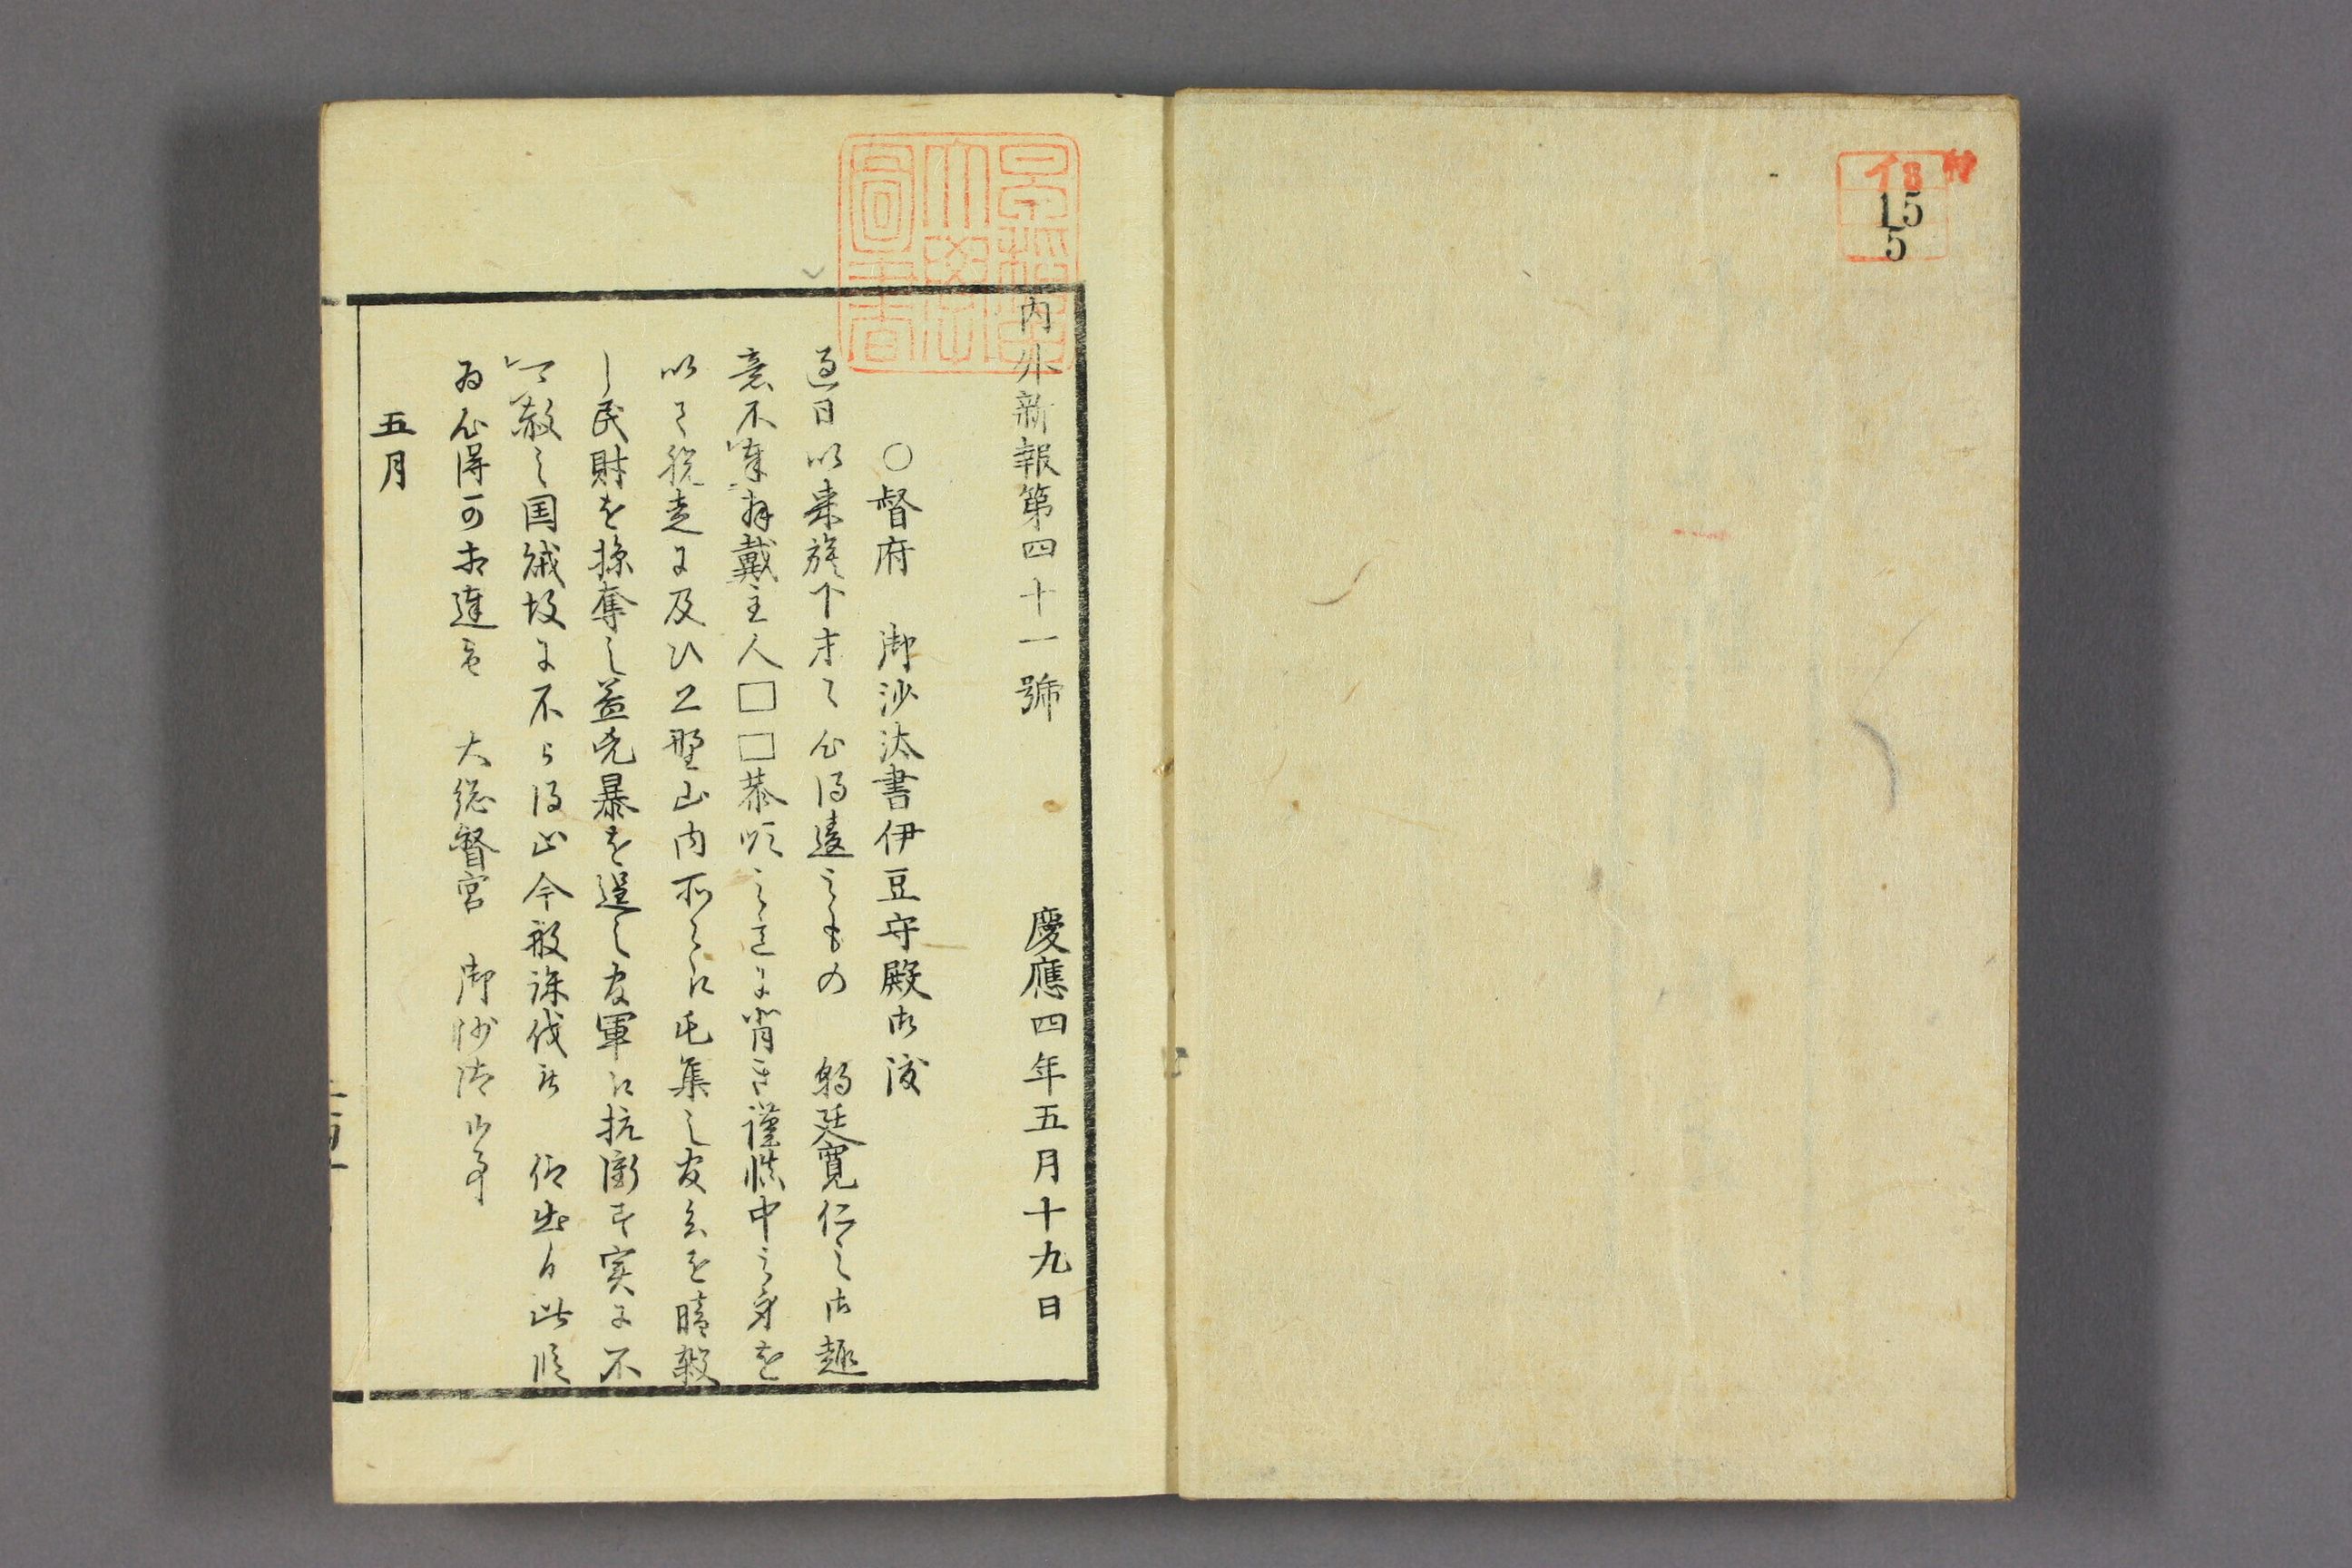 イ8 特
15
5
内外新報第四十一號 慶應四年五月十九日
○督府 御沙汰書伊豆守殿御渡
過日以来旗下末々心得違之もの 朝廷寛仁之御趣
意不奉拝戴主人□□恭順之意に背き謹慎中之身を
以て脱走に及ひ上野山内所々江屯集し官兵を暗殺
し民財を掠奪し益兇暴を逞し官軍江抗衝す実に不
可赦之国賊故に不得止今般誅伐被 仰出候此段
為心得可相達旨 大総督宮 御沙汰候事
五月